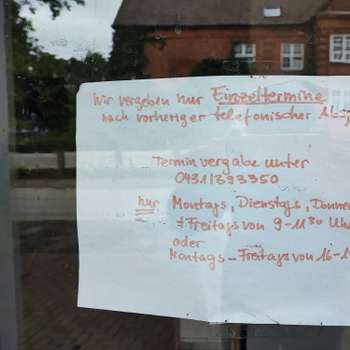 Wir vergeben nur Einzeltermine
nach vorheriger telefonischer
Terminvergabe unter
04311393350
nur Montags, Dienstags,
+ Freitags von 9-11³⁰ Uhr
oder
Montags - Freitags von 16-1